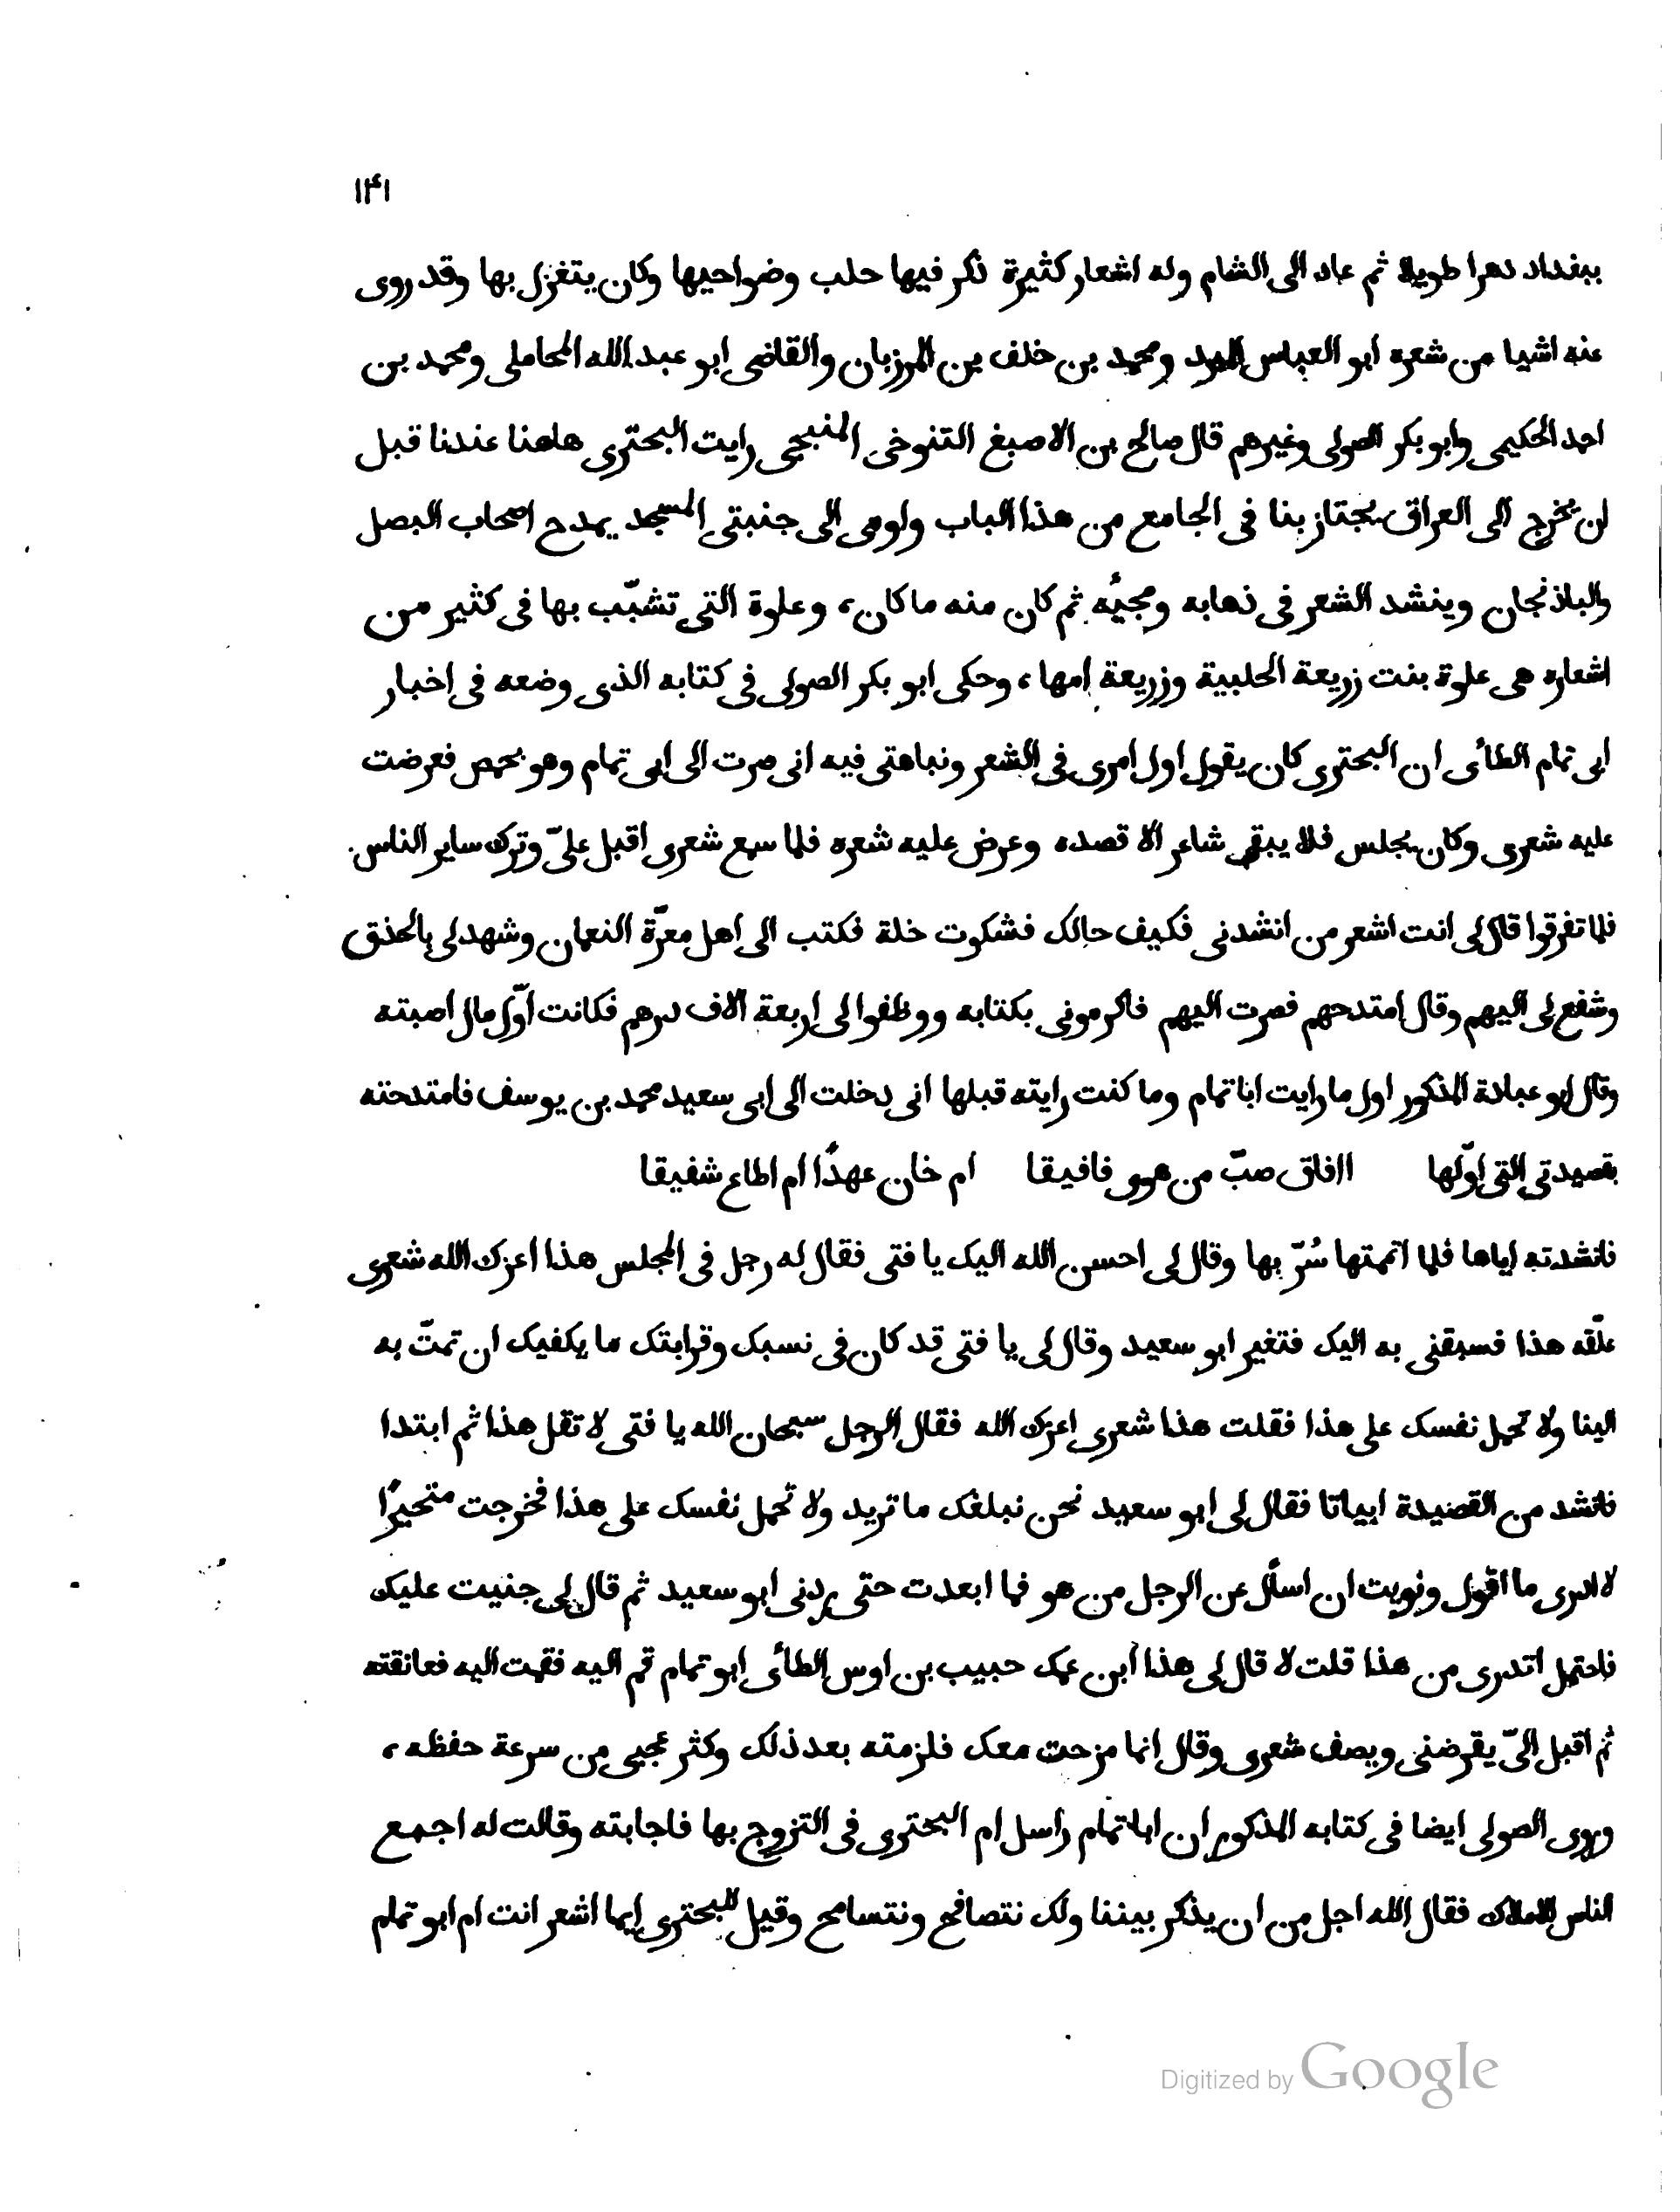 ١٤١
ببغداد دهرا طويلا ثم عاد الى الشام وله اشعار كثيرة ذكر فيها حلب وضواحيها وكان يتغزل بها وقد روى
عنه اشيا من شعره ابو العباس المبرد ومحمد بن خلف بن المرزبان والقاضى ابو عبد الله المحاملى ومحمد بن
احمد الحكيمى وابو بكر الصولى وغيرهم قال صالح بن الاصبغ التنوخى المنبجى رايت البحترى هاهنا عندنا قبل
ان يخرج الى العراق يجتاز بنا فى الجامع من هذا الباب واومى الى جنبتى المسجد يمدح اصحاب البصل
والباذنجان وينشد الشعر فى ذهابه ومجيئه ثم كان منه ما كان، وعلوة التى تشبّب بها فى كثير من
اشعاره هى علوة بنت زريعة الحلبية وزريعة امها، وحكى ابو بكر الصولى فى كتابه الذى وضعه فى اخبار
ابى تمام الطائى ان البحترى كان يقول اول امرى فى الشعر ونباهتى فيه انى صرت الى ابى تمام وهو بحمص فعرضت
عليه شعرى وكان يجلس فلا يبقى شاعر الا قصده وعرض عليه شعره فلما سمع شعرى اقبل علىّ وترك ساير الناس
فلما تفرقوا قال لى انت اشعر من انشدنى فكيف حالك فشكوت خلة فكتب الى اهل معرّة النعمان وشهد لى بالحذق
وشفع لى اليهم وقال امتدحهم فصرت اليهم فاكرمونى بكتابه ووظفوا لى اربعة الاف درهم فكانت اوّل مال اصبته
وقال ابو عبادة المذكور اول ما رايت ابا تمام وما كنت رايته قبلها انى دخلت الى ابى سعيد محمد بن يوسف فامتدحته
بقصيدتى التى اوّلها     اافاق صبّ من هوى فافيقا     ام خان عهدًا ام اطاع شفيقا
فانشدته اياها فلما اتممتها سُرّ بها وقال لى احسن الله اليك يا فتى فقال له رجل فى المجلس هذا اعزك الله شعرى
علّقه هذا فسبقنى به اليك فتغير ابو سعيد وقال لى يا فتى قد كان فى نسبك وقرابتك ما يكفيك ان تمتّ به
الينا ولا تحمل نفسك على هذا فقلت هذا شعرى اعزك الله فقال الرجل سبحان الله يا فتى لا تقل هذا ثم ابتدا
فانشد من القصيدة ابياتا فقال لى ابو سعيد نحن نبلغك ما تريد ولا تحمل نفسك على هذا فخرجت متحيرًا
لا ادرى ما اقول ونويت ان اسأل عن الرجل من هو فما ابعدت حتى ردنى ابو سعيد ثم قال لى جنيت عليك
فاحتمل اتدرى من هذا قلت لا قال لى هذا ابن عمك حبيب بن اوس الطائى ابو تمام قم اليه فقمت اليه فعانقته
ثم اقبل الىّ يقرضنى ويصف شعرى وقال انما مزحت معك فلزمته بعد ذلك وكثر عجبى من سرعة حفظه،
وروى الصولى ايضا فى كتابه المذكور ان ابا تمام راسل ام البحترى فى التزوج بها فاجابته وقالت له اجمع
الناس للاملاك فقال الله اجل من ان يذكر بيننا ولك نتصافح ونتسامح وقيل للبحترى ايما اشعر انت ام ابو تمام
Digitized by Google